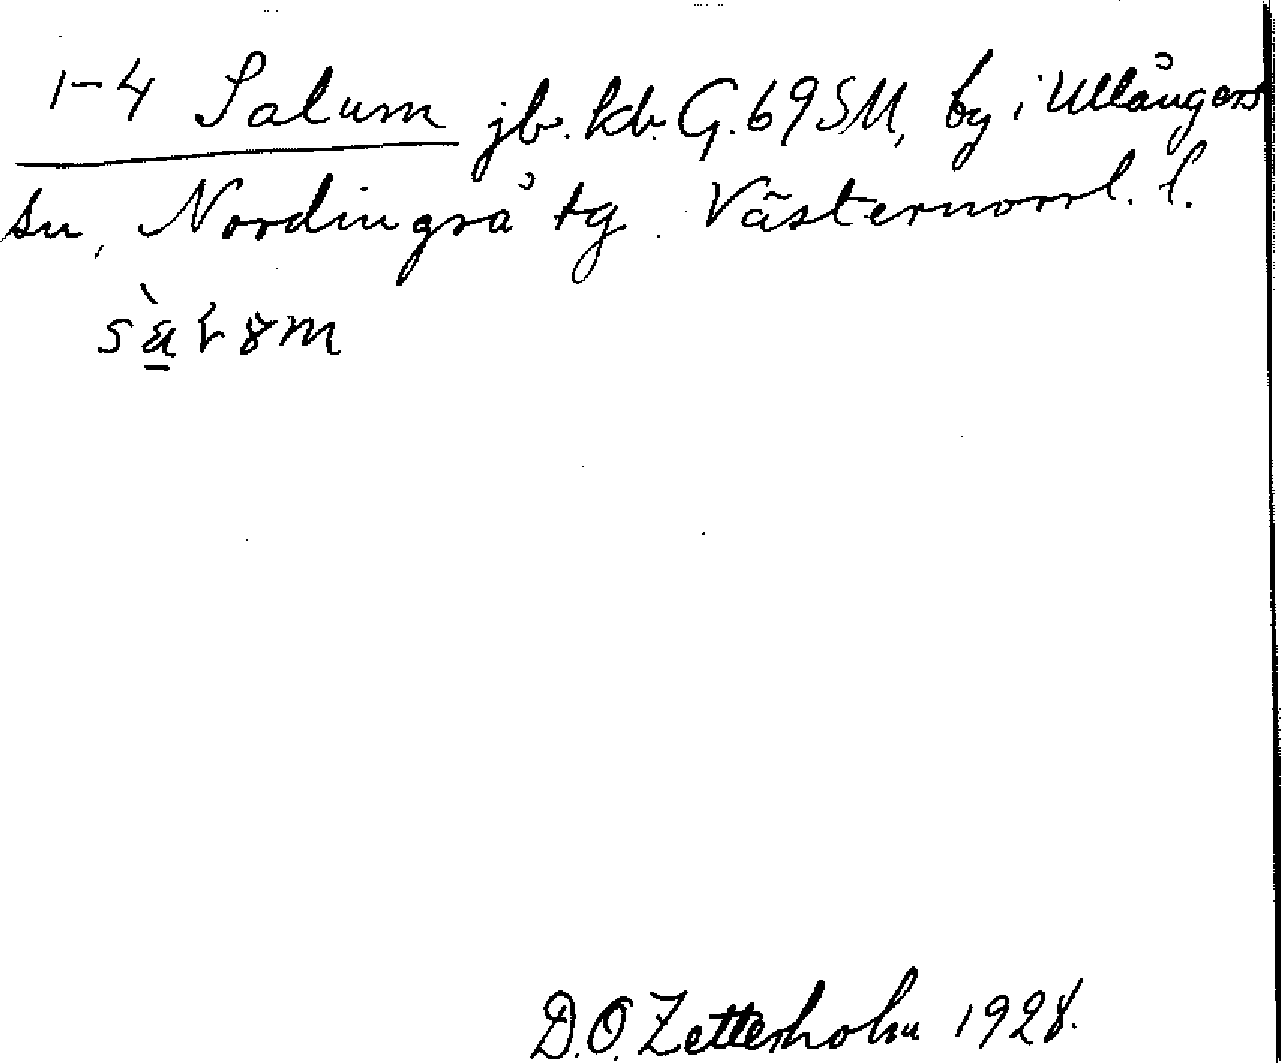 1-4 Salum jb. kb. G.69SM, by i Ullångers
sn, Nordingrå tg. Västernorrl. l.
D.O. Zetterholm 1928.